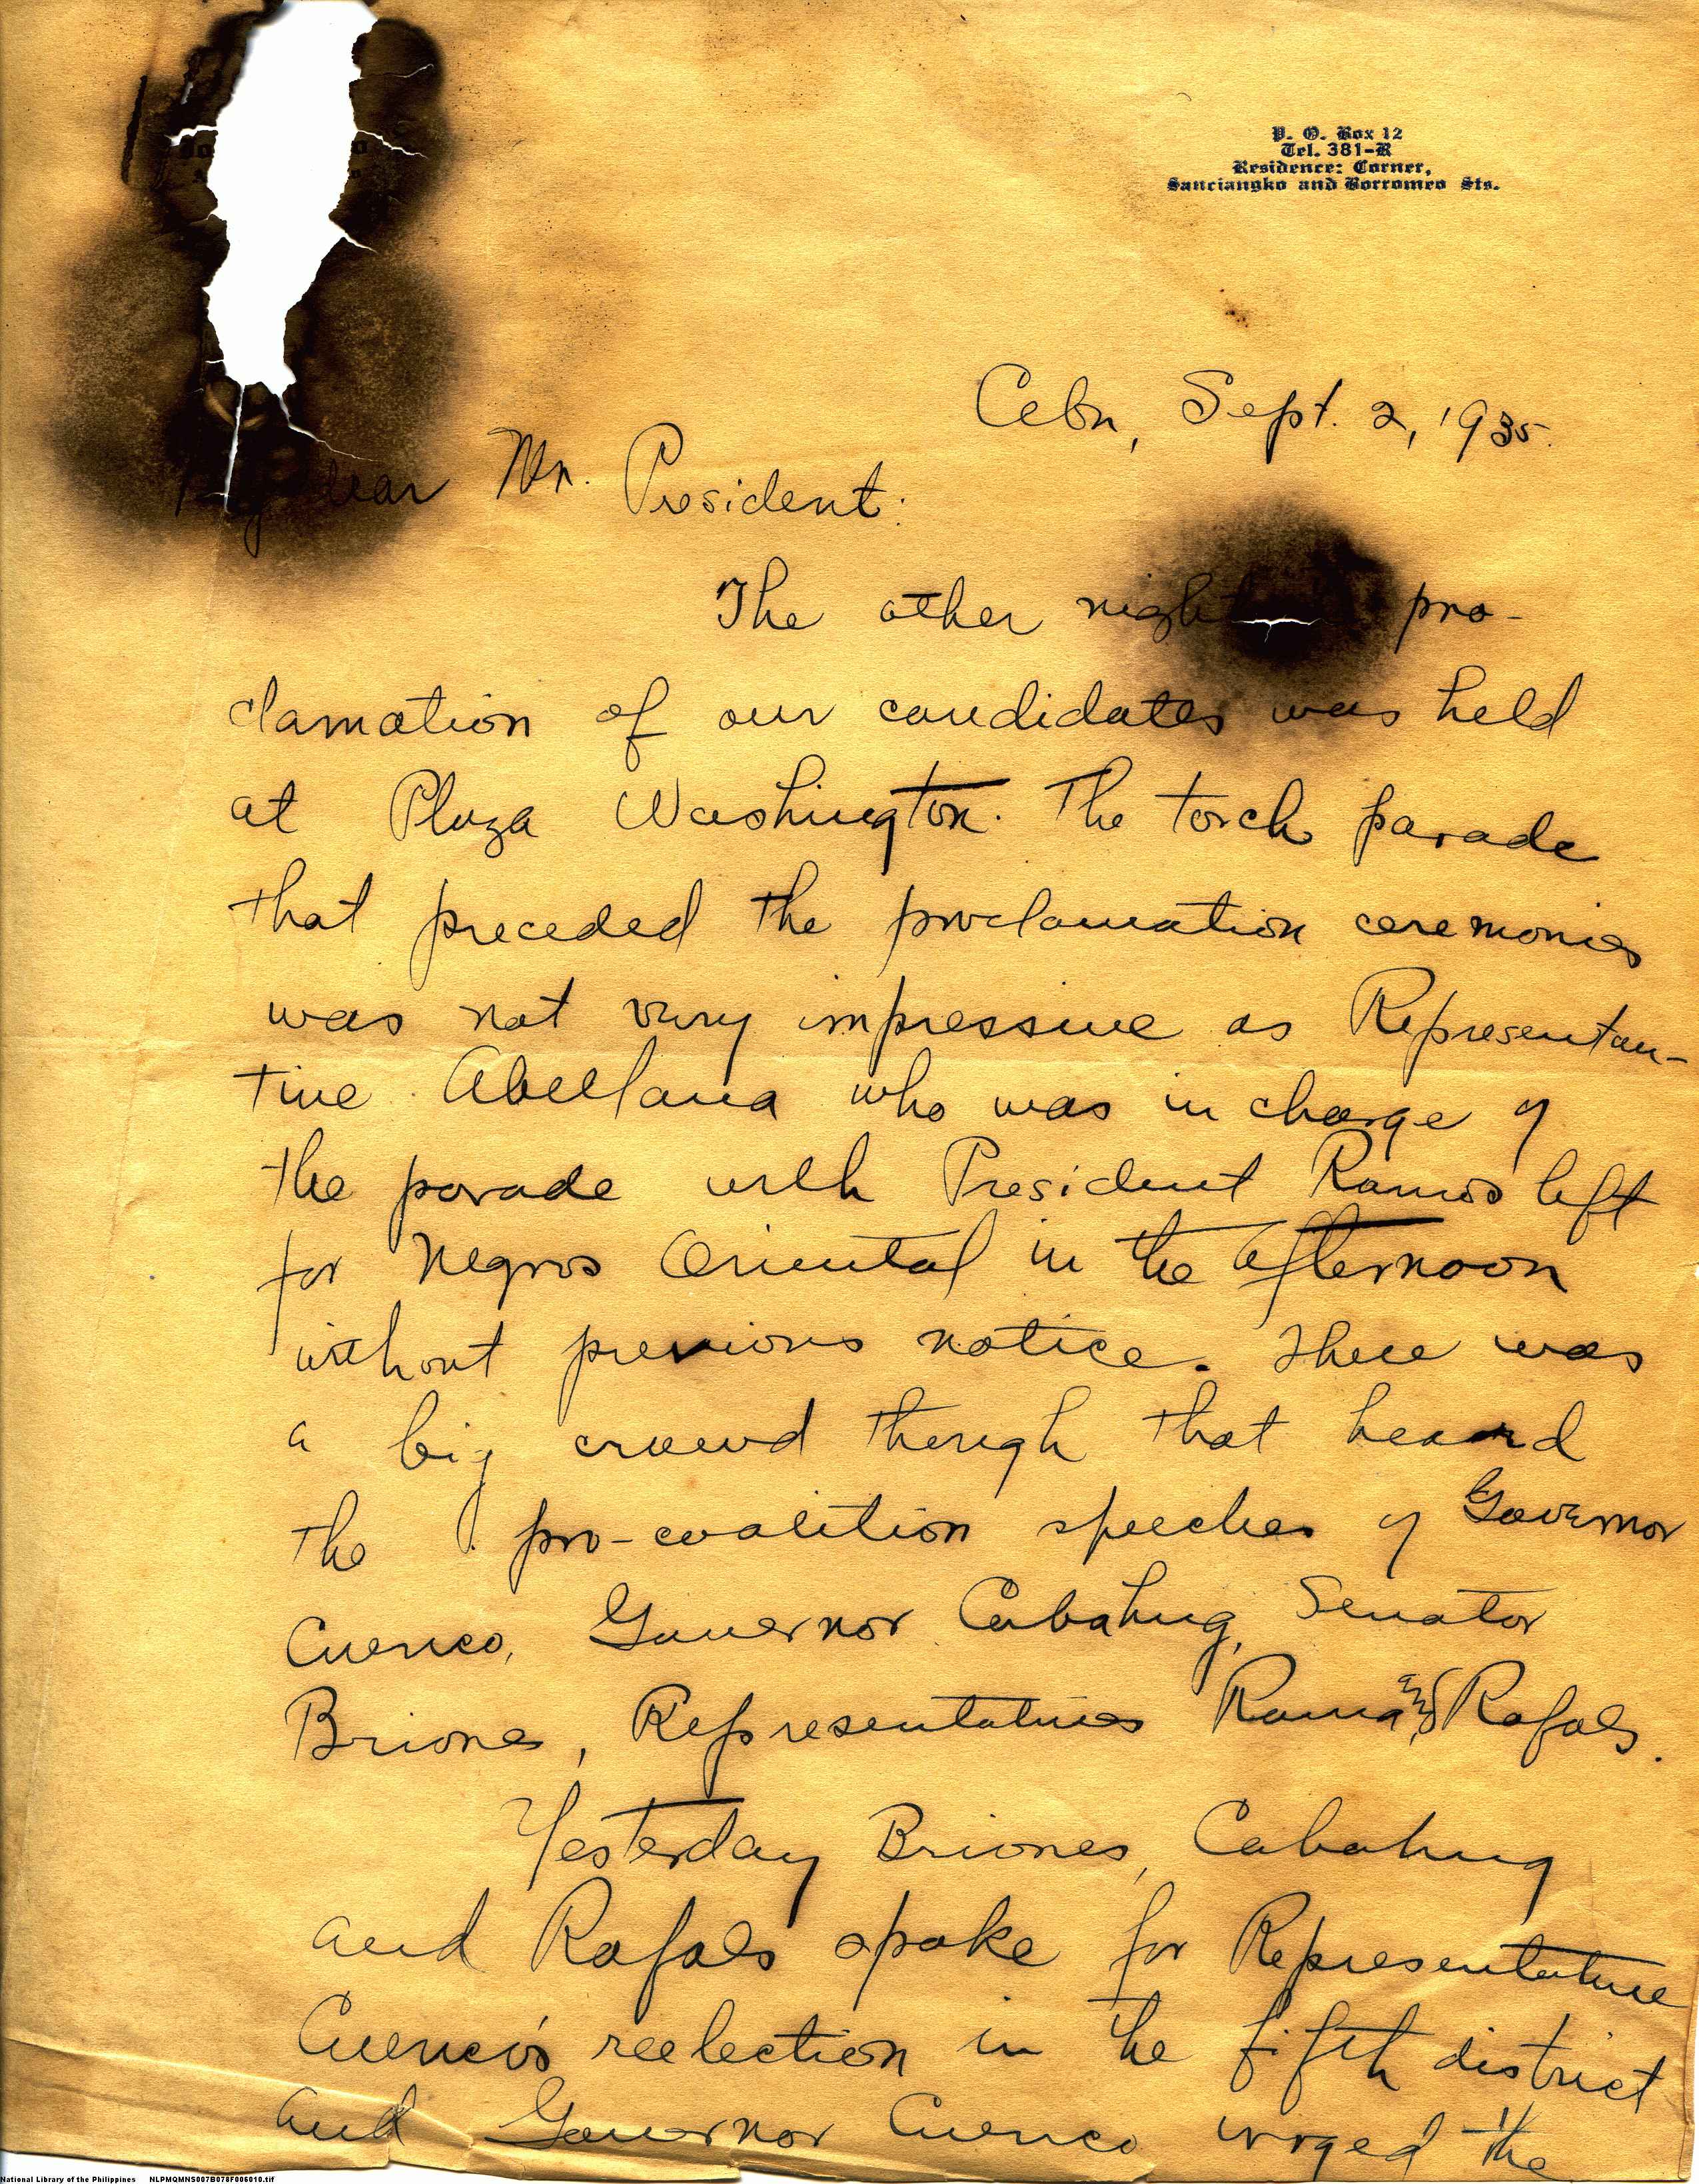 P. O. Box 12
Tel. 381-R
Residence: Corner,
Sanciangko and Borromeo Sts.
Cebu, Sept. 2, 1935.
My dear Mr. President:
The other night pro-
clamation of our candidates was held
at Plaza Washington. The torch parade
that preceded the proclamation ceremonies
was not very impressive as Representan-
tive Abellana who was in charge of
the parade with President Ramos left
for Negros Oriental in the afternoon
without previous notice. There was
a big crowd though that heard
the pro-coalition speeches of Governor
Cuenco, Governor Cabahug, Senator
Briones, Representatives Rama and Rafols.
Yesterday Briones, Cabahug
and Rafols spoke for Representative
Cuenco's reelection in the fifth district
and Governor Cuenco urged the
National Library of the Philippines NLPMQMNS007B078F006010.tif